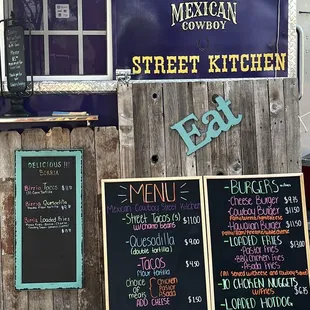 MEXICAN
COWBOY
STREET KITCHEN
Eat
DELICIOUS !!!
BIRRIA
Birria Tacos
Birria Quesadilla
Birria Loaded Fries
MENU
Mexican Cowboy Street Kitchen
-Street Tacos (3) $11.00
w/charro beans
-Quesadilla $9.00
(double tortilla)
-Tacos $4.50
flour tortilla
CHOICE of meats
Chicken
Pastor
Asada
ADD CHEESE $1.50
-BURGERS
-Cheese Burger $9.75
-Cowboy Burger $11.50
-Hawaiian Burger $11.50
-LOADED FRIES $13.00
-Pastor Fries
-BBQ Chicken Fries
-Asada Fries
-10 CHICKEN NUGGETS
w/FRIES
-LOADED HOTDOG